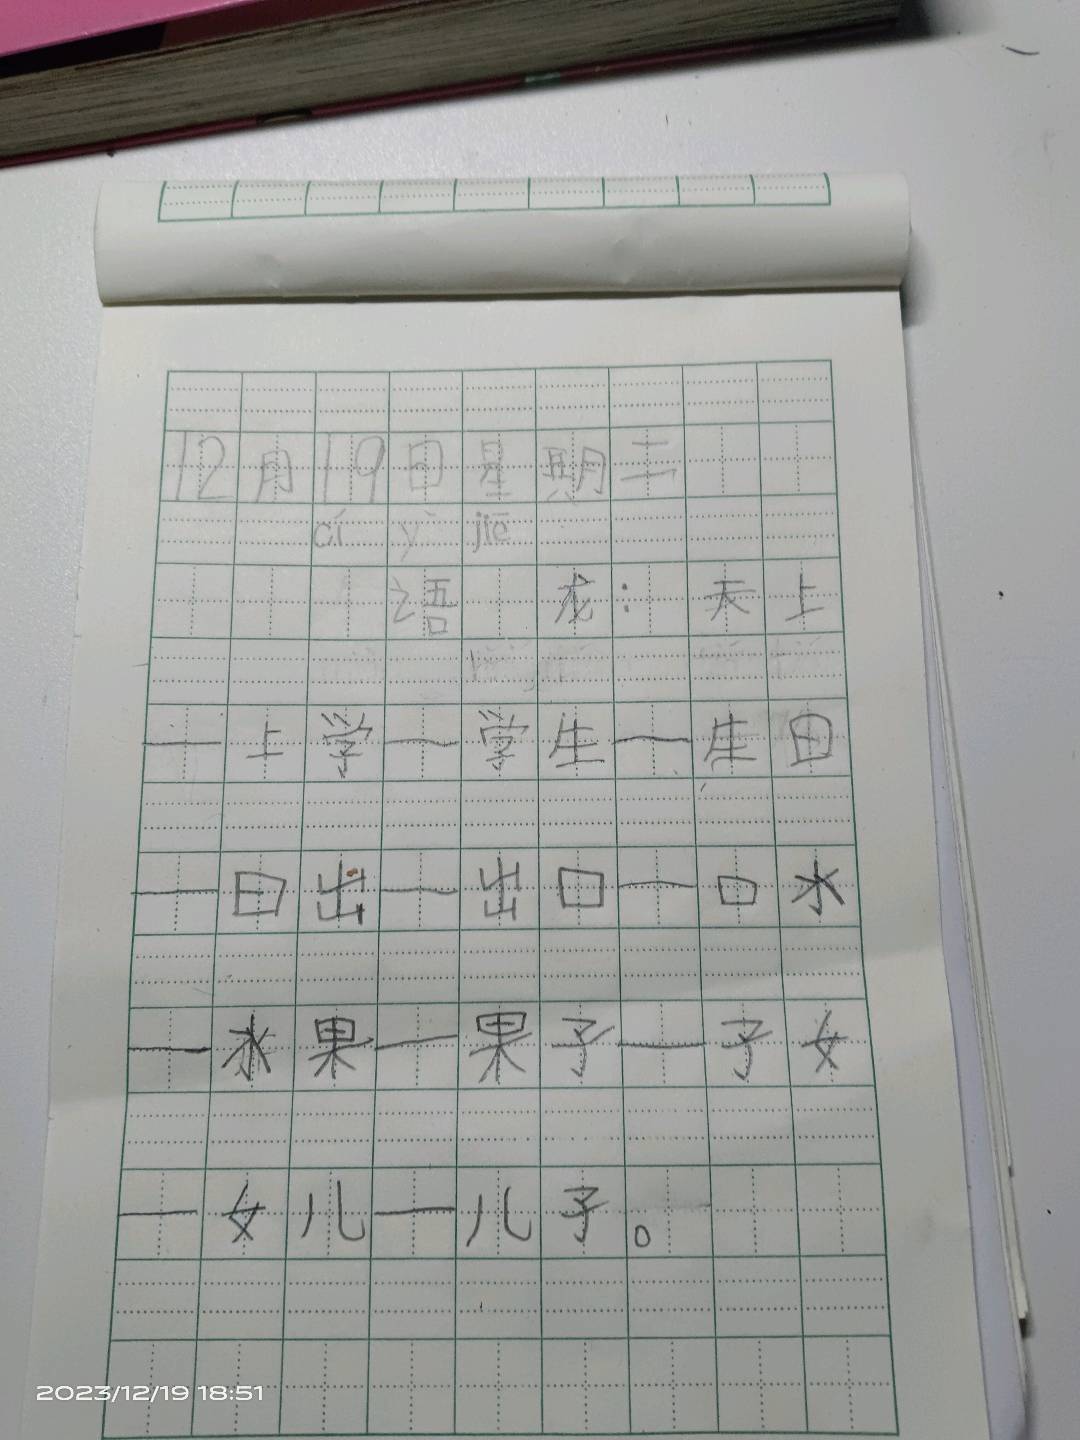 12月19日星期二
cí yǔ jiē
语 龙：天上
一上学一学生一生日
一日出一出口一口水
一水果一果子一子女
一女儿一儿子。
2023/12/19 18:51